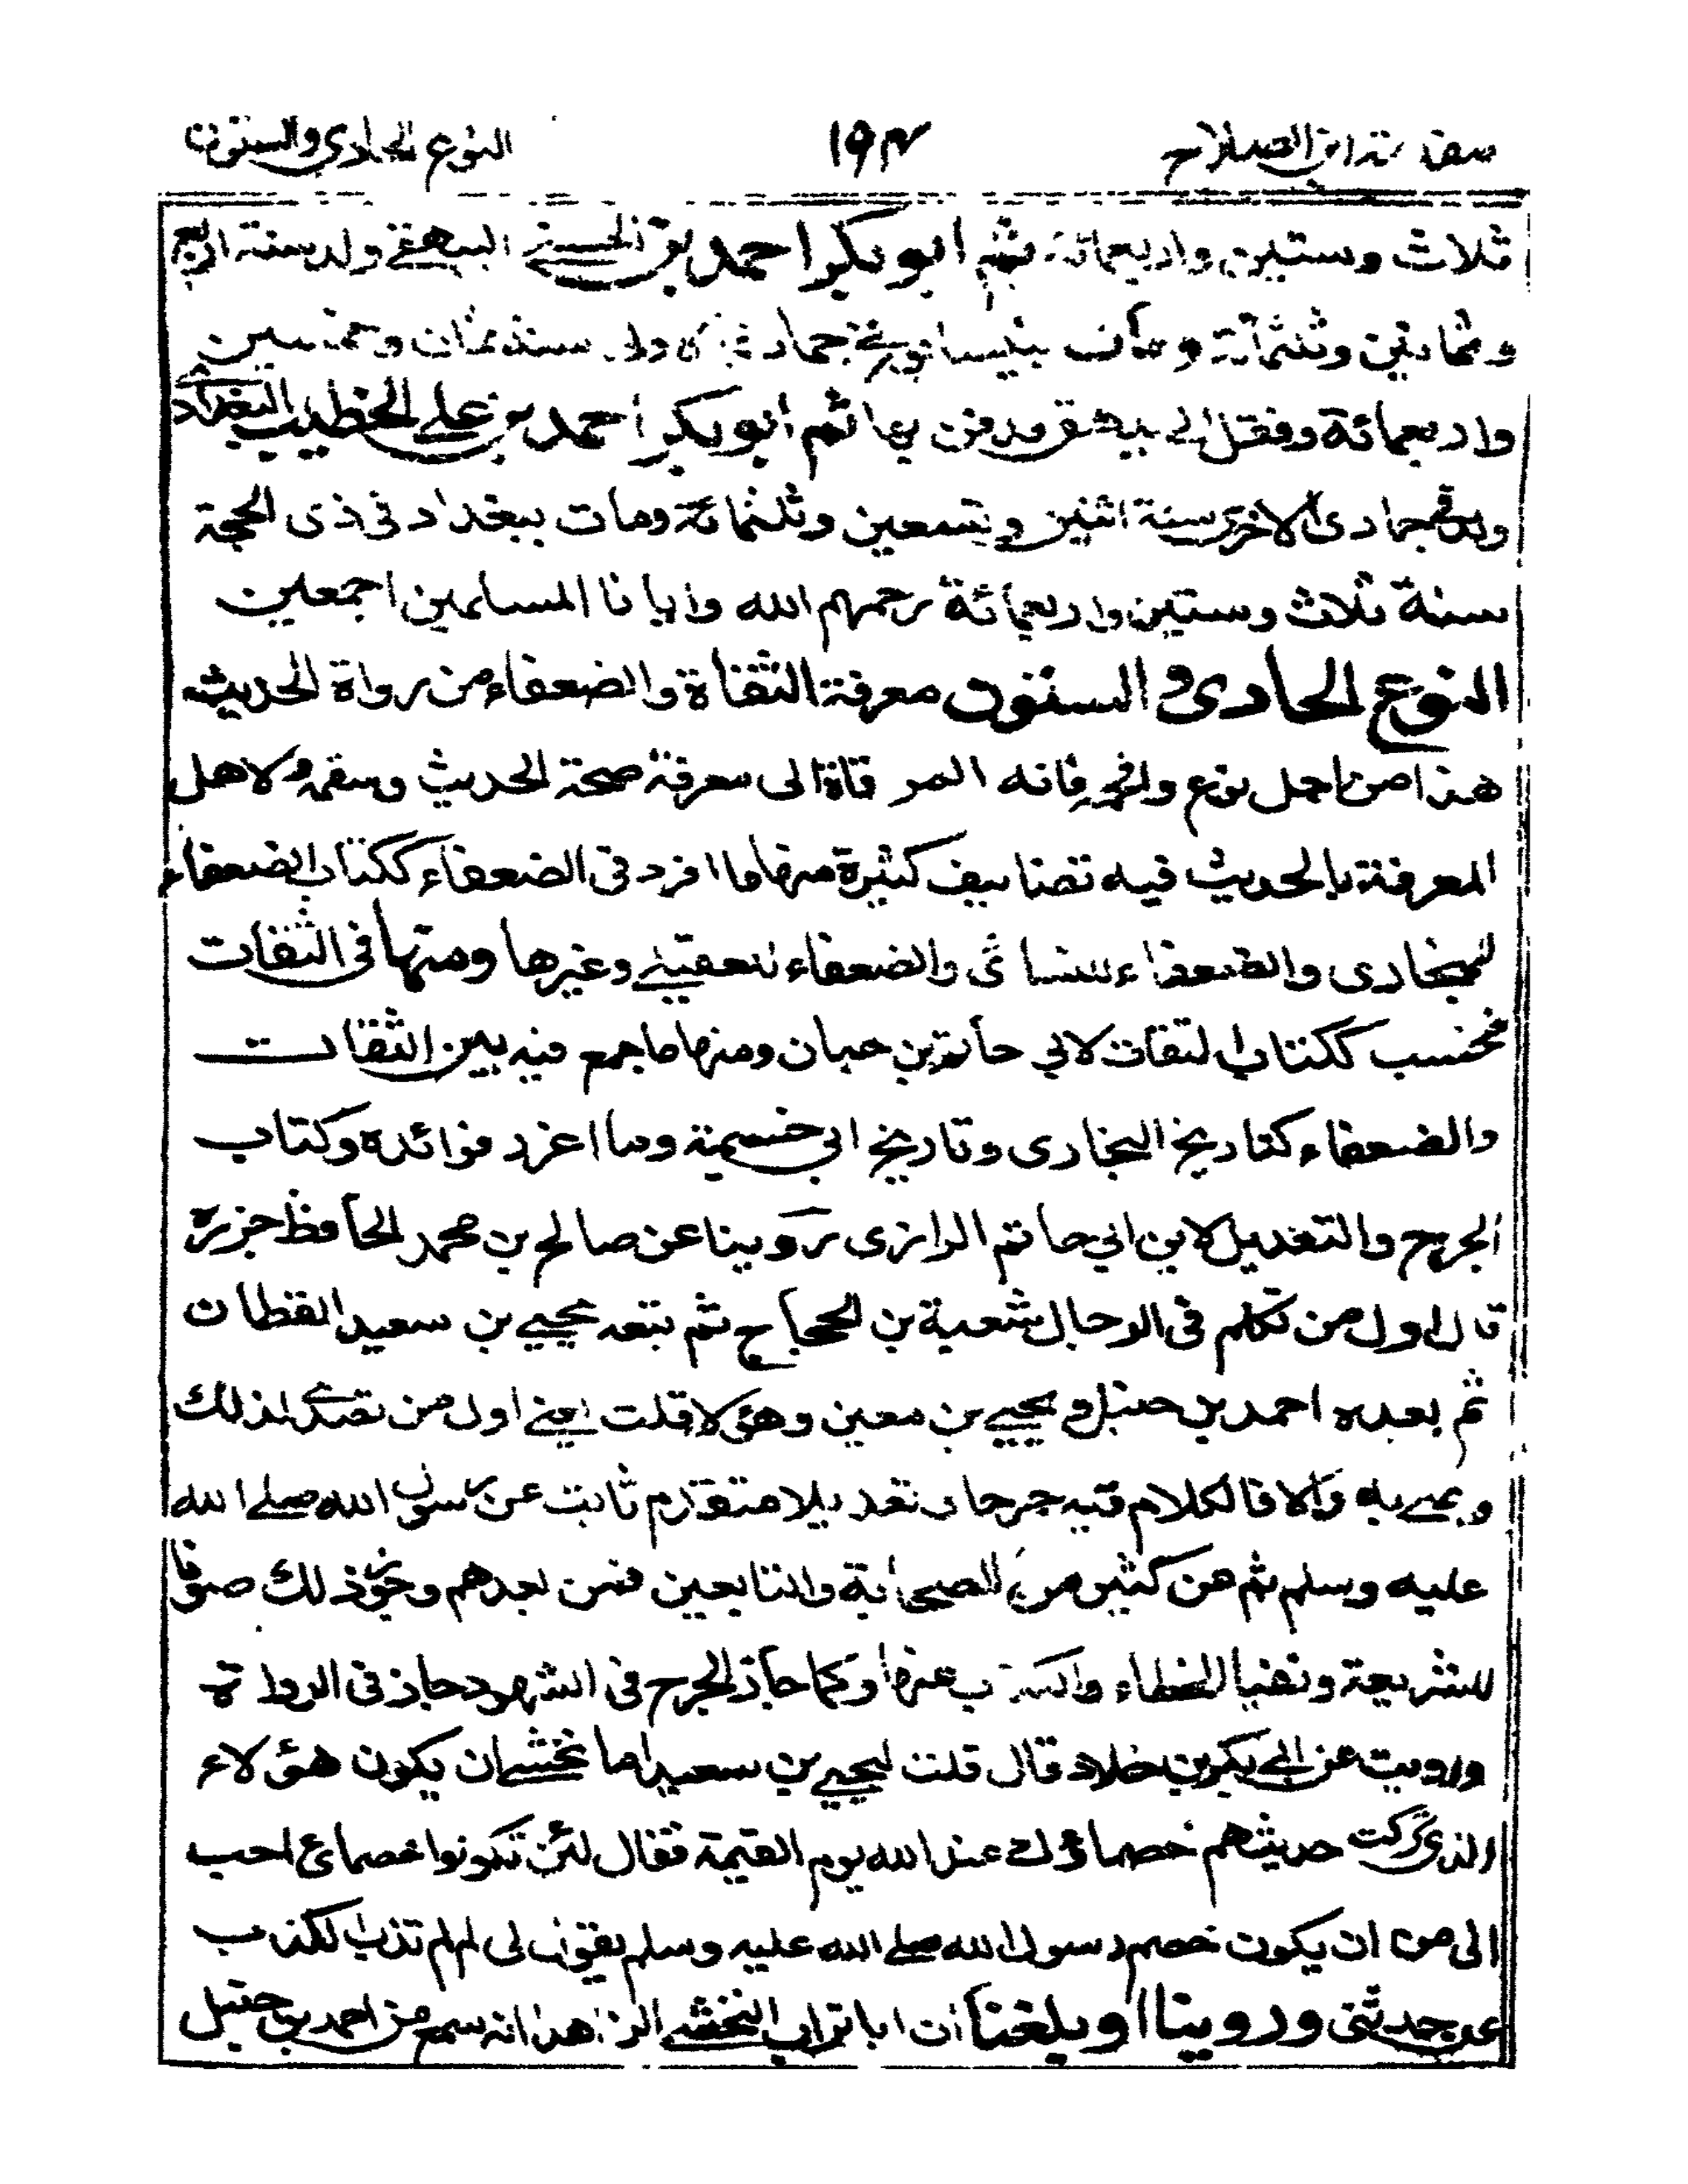 مقدمة ابن الصلاح ١٩٣ النوع الحادى والستون
ثلاث وستين واربعمائة ثم ابو بكر احمد بن الحسين البيهقي ولد سنة اربع
وثمانين وثلثمائة ومات بنيسابور في جمادى الاولى سنة ثمان وخمسين
واربعمائة ونقل الى بيهق ودفن بها ثم ابو بكر احمد بن علي الخطيب البغدادي
ولد في جمادى الاخرى سنة اثنين وتسعين وثلثمائة ومات ببغداد فى ذى الحجة
سنة ثلاث وستين واربعمائة رحمهم الله وايانا المسلمين اجمعين
النوع الحادى والستون معرفة الثقاة والضعفاء من رواة الحديث
هذا من اجل نوع وافخمه فانه المرقاة الى معرفة صحة الحديث وسقمه ولاهل
المعرفة بالحديث فيه تصانيف كثيرة منها ما افرد فى الضعفاء ككتاب الضعفاء
للبخارى والضعفاء للنسائى والضعفاء للعقيلي وغيرها ومنها فى الثقات
فحسب ككتاب الثقات لابي حاتم بن حبان ومنها ما جمع فيه بين الثقات
والضعفاء كتاريخ البخارى وتاريخ ابي خيثمة وما اغزر فوائده وكتاب
الجرح والتعديل لابن ابي حاتم الرازى روينا عن صالح بن محمد الحافظ جزرة
قال اول من تكلم فى الرجال شعبة بن الحجاج ثم تبعه يحيي بن سعيد القطان
ثم بعده احمد بن حنبل ويحيي بن معين وهؤلا قلت يعني اول من تصدى لذلك
وعني به والا فالكلام فيه جرحا وتعديلا متقدم ثابت عن رسول الله صلے الله
عليه وسلم ثم عن كثير من الصحابة والتابعين فمن بعدهم وجوز ذلك صونا
للشريعة ونفيا للخطاء والكذب عنها وكما جاز الجرح فى الشهود جاز فى الرواة
ورويت عن ابي بكر بن خلاد قال قلت ليحيي بن سعيد اما تخشے ان يكون هؤلاء
الذى تركت حديثهم خصماؤك عند الله يوم القيمة فقال لئن تكونوا خصمائ احب
الى من ان يكون خصم رسول الله صلے الله عليه وسلم يقول لى لم لم تذب الكذب
عن حديثى وروينا او بلغنا ان ابا تراب النخشبے الزاهد انه سمع من احمد بن حنبل